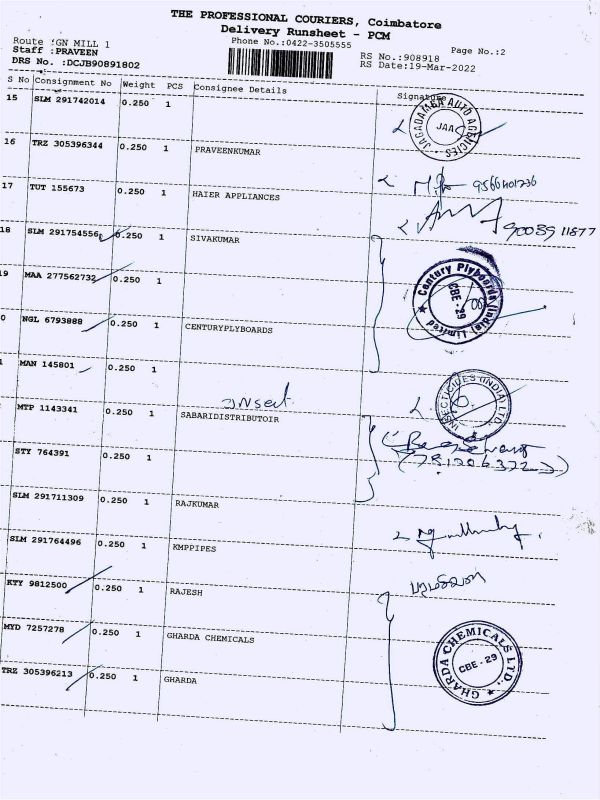 THE PROFESSIONAL COURIERS, Coimbatore
Delivery Runsheet - PCM
Route :GN MILL 1 Phone No.:0422-3505555 Page No.:2
Staff :PRAVEEN RS No.:908918
DRS No. :DCJB90891802 RS Date:19-Mar-2022
S No Consignment No Weight PCS Consignee Details Signature
15 SLM 291742014 0.250 1
JAGADAMBA AUTO AGENCIES JAA
16 TRZ 305396344 0.250 1 PRAVEENKUMAR
17 TUT 155673 0.250 1 HAIER APPLIANCES
18 SLM 291754556 0.250 1 SIVAKUMAR
90039 11877
19 MAA 277562732 0.250 1
Century Plyboards (India) Limited CBE-29
0 NGL 6793888 0.250 1 CENTURYPLYBOARDS
1 MAN 145801 0.250 1
INSECTICIDES (INDIA) LTD.
MTP 1143341 0.250 1 SABARIDISTRIBUTOIR
STY 764391 0.250 1
SLM 291711309 0.250 1 RAJKUMAR
SLM 291764496 0.250 1 KMPPIPES
KTY 9812500 0.250 1 RAJESH
MYD 7257278 0.250 1 GHARDA CHEMICALS
GHARDA CHEMICALS LTD. CBE-29
TRZ 305396213 0.250 1 GHARDA